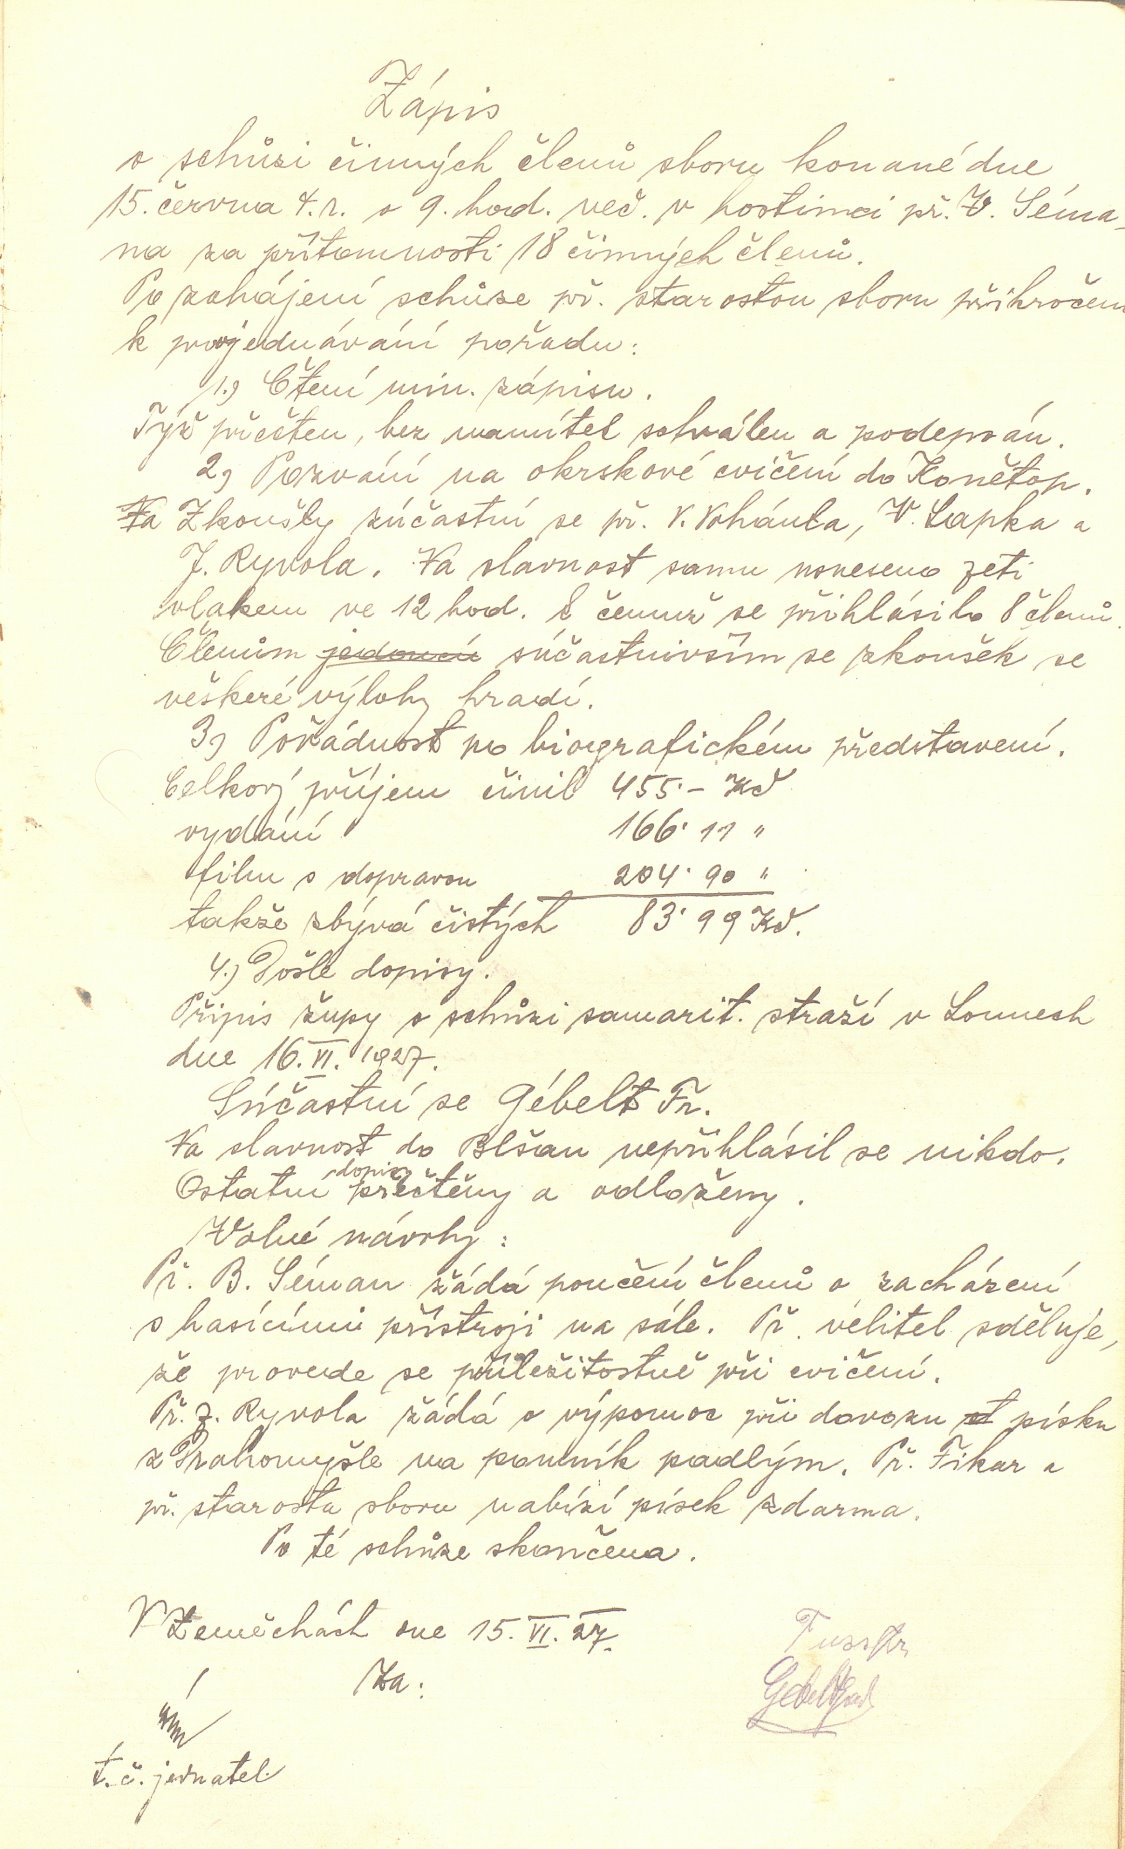 Zápis
o schůzi činných členů sboru konané dne
15. června t.r. o 9. hod. več. v hostinci př. V. Séma-
na za přítomnosti 18 činných členů.
Po zahájení schůze př. starostou sboru přikročeno
k projednávání pořadu:
1.) Čtení min. zápisu.
Týž přečten, bez námitek schválen a podepsán.
2) Pozvání na okrskové cvičení do Konětop.
Na Zkoušky zúčastní se př. V. Vohánka, V. Lapka a
J. Ryvola. Na slavnost samu usneseno jeti
vlakem ve 12 hod. k čemuž se přihlásilo 8 členů.
Členům jedoucí súčastnivším se zkoušek se
veškeré výlohy hradí.
3) Pořádnost po biografickém představení.
Celkový příjem činil 455.- Kč
vydání 166.11 "
film s dopravou 204.90 "
takže zbývá čistých 83.99 Kč.
4.) Došlé dopisy.
Připis župy o schůzi samarit. straží v Lounech
dne 16. VI. 1927.
Súčastní se Gébelt Fr.
Na slavnost do Blšan nepřihlásil se nikdo.
Ostatní dopisy přečtěny a odloženy.
Volné návrhy:
Př. B. Séman žádá poučení členů o zacházení
s hasícími přístroji na sále. Př. velitel sděluje,
že provede se příležitostně při cvičení.
Př. J. Ryvola žádá o výpomoc při dovozu písku
z Drahomyšle na pomník padlým. Př. Fikar a
př. starosta sboru nabízí písek zdarma.
Po té schůze skončena.
V Zeměchách dne 15. VI. 27.
Za:
t.č. jednatel